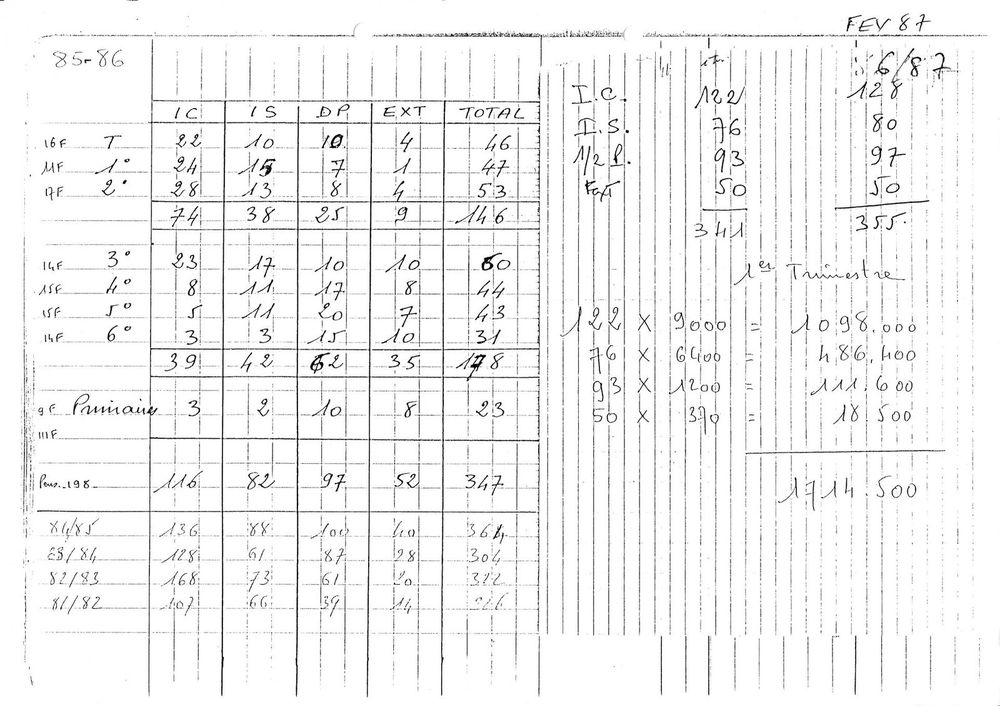 FEV 87
85-86
6/87
IC IS DP EXT TOTAL
16F T 22 10 10 4 46
11F 1° 24 15 7 1 47
17F 2° 28 13 8 4 53
74 38 25 9 146
14F 3° 23 17 10 10 60
15F 4° 8 11 17 8 44
15F 5° 5 11 20 7 43
14F 6° 3 3 15 10 31
39 42 62 35 178
9F Primaires 3 2 10 8 23
111F
Pens. 198 116 82 97 52 347
84/85 136 88 100 40 364
83/84 128 61 87 28 304
82/83 168 73 61 20 322
81/82 107 66 39 14 226
I.C. 122 128
I.S. 76 80
1/2 P. 93 97
Ext 50 50
341 355
1er Trimestre
122 X 9000 = 1098.000
76 X 6400 = 486.400
93 X 1200 = 111.600
50 X 370 = 18.500
1714.500